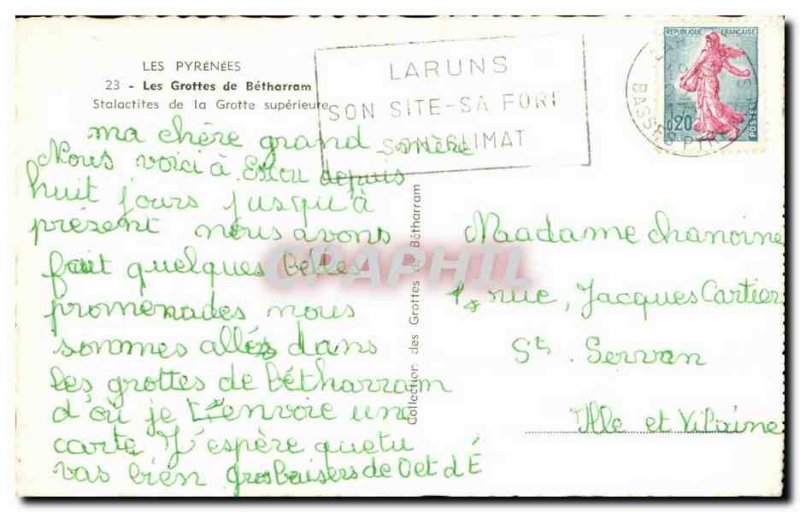 LES PYRÉNÉES
23 - Les Grottes de Bétharram
Stalactites de la Grotte supérieure
LARUNS
SON SITE-SA FORE
SON CLIMAT
REPUBLIQUE FRANÇAISE
0,20
POSTES
BASSES PYR
ma chère grand mère
Nous voici à depuis
huit jours jusqu'à
présent nous avons
fait quelques belles
promenades nous
sommes allés dans
les grottes de Bétharram
d'où je t'envoie une
carte J'espère que tu
vas bien gros baisers de O et d É
Collection des Grottes de Bétharram
Maadame chanoine
rue, Jacques Cartier
St. Servan
Ille et Vilaine
CPAPHIL